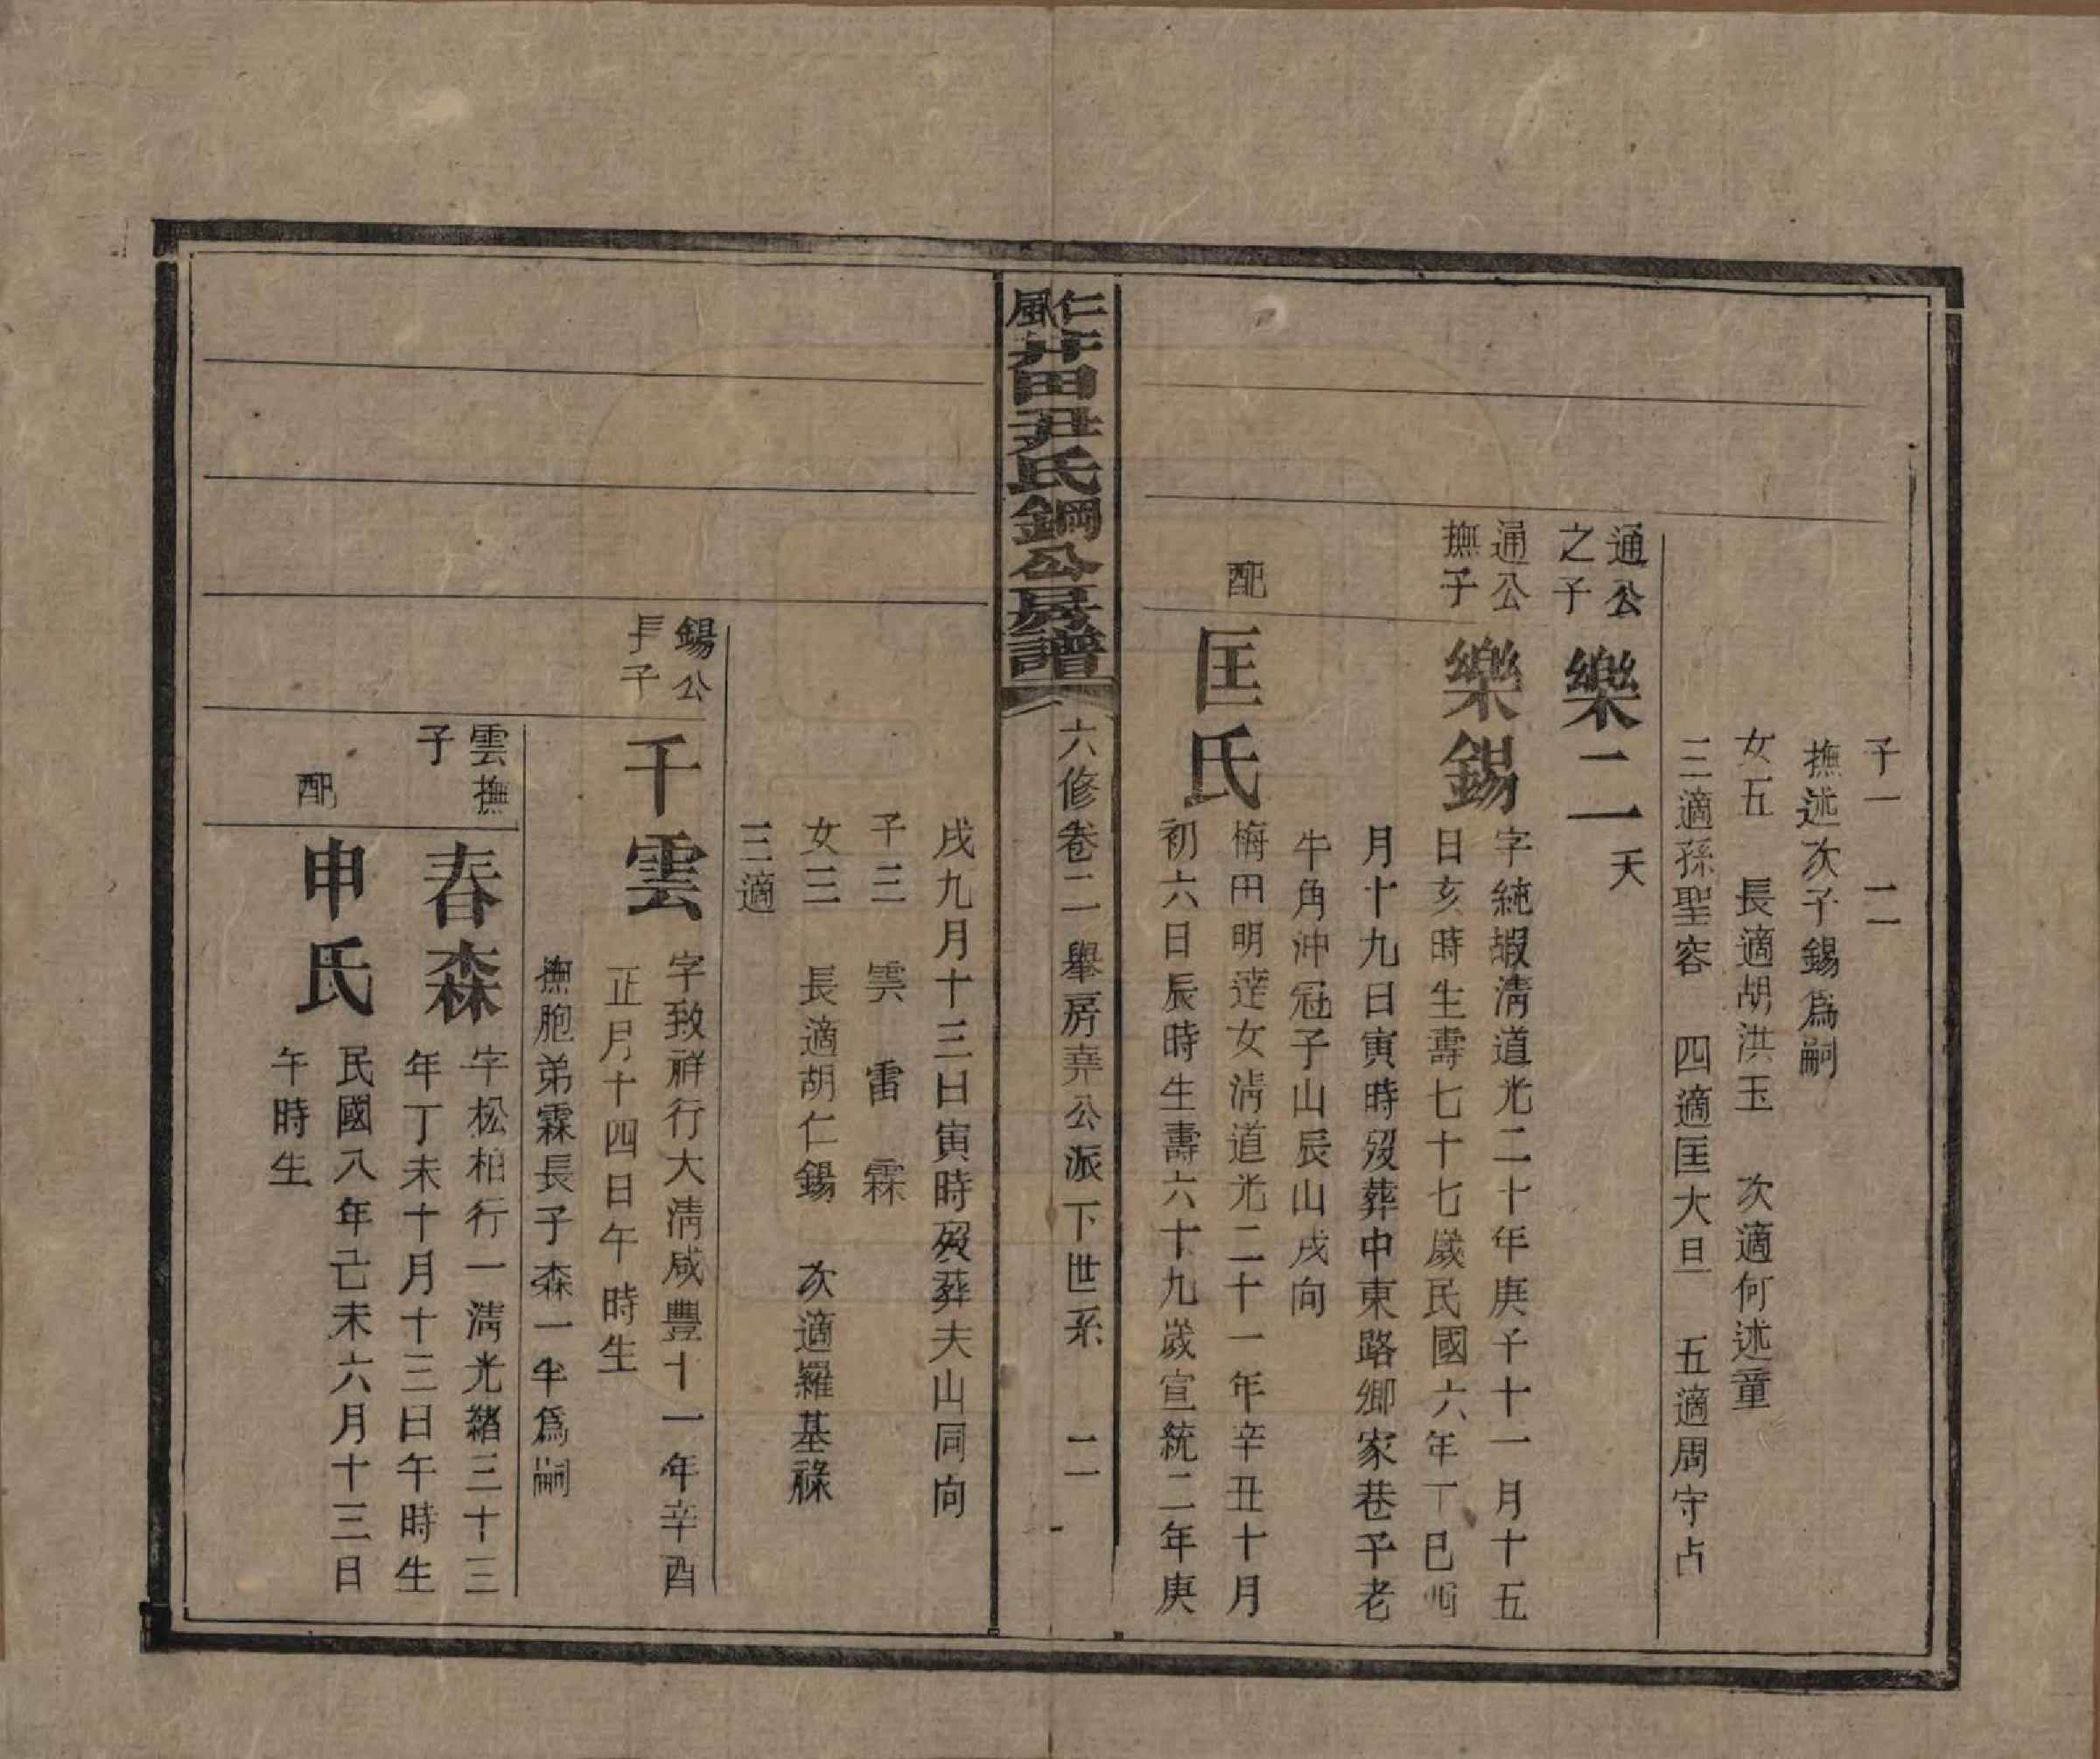 子一 二
撫述次子錫爲嗣
女五 長適胡洪玉 次適何述童
三適孫聖容 四適匡大旦 五適周守占
通公
之子
樂二一 夭
通公
撫子
樂錫
字純嘏清道光二十年庚子十一月十五
日亥時生壽七十七歲民國六年丁巳
月十九日寅時歿葬中東路鄉家巷予老
牛角沖冠子山辰山戌向
配
匡氏
梅田明達女清道光二十一年辛丑十月
初六日辰時生壽六十九歲宣統二年庚
仁風井田尹氏鋼公房譜
六修卷二 舉房堯公派下世系 二一
戌九月十三日寅時歿葬夫山同向
子三 雲 雷 霖
女三 長適胡仁錫 次適羅基祿
三適
錫公
長子
千雲
字致祥行大清咸豐十一年辛酉
正月十四日午時生
撫胞弟霖長子森一半爲嗣
雲撫
子
春森
字松柏行一清光緒三十三
年丁未十月十三日午時生
配
申氏
民國八年己未六月十三日
午時生